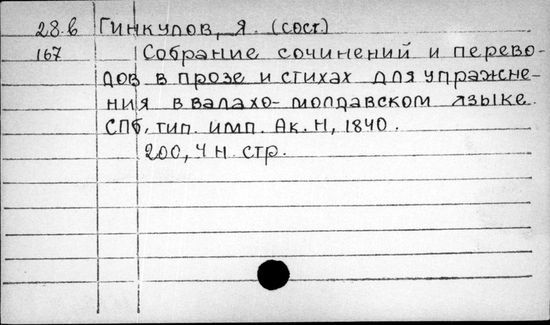 28.б Гинкулов, Я. (сост.)
167 Собрание сочинений и перево-
дов в прозе и стихах для упражне-
ния в валахо-молдавском языке.
СПб, тип. имп. Ак. Н, 1840.
200, 4 н. стр.